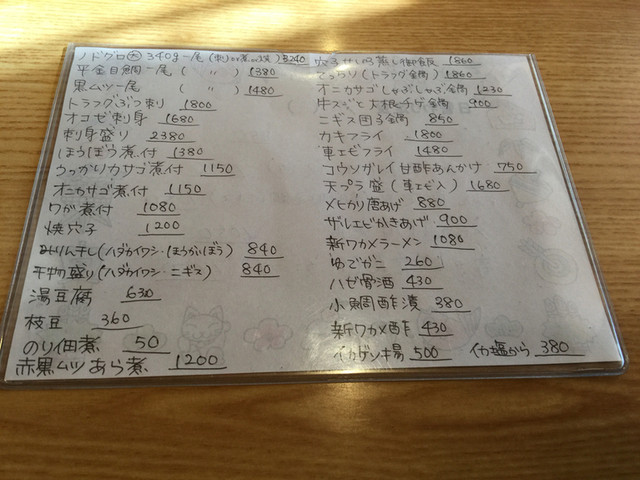 ノドグロ(大) 340g一尾 (刺or煮or焼) 3240
平金目鯛一尾 ( 〃 ) 1380
黒ムツ一尾 ( 〃 ) 1480
トラフグぶつ刺 1800
オコゼ刺身 1680
刺身盛り 2380
ほうぼう煮付 1380
うっかりカサゴ煮付 1150
オニカサゴ煮付 1150
ワガ煮付 1080
焼穴子 1200
みりん干し(ハダカイワシ・ほうかいぼう) 840
干物盛り(ハダカイワシ・ニギス) 840
湯豆腐 630
枝豆 360
のり佃煮 50
赤黒ムツあら煮 1200
穴子せいろ蒸し御飯 1860
てっちり(トラフグ鍋) 1860
オニカサゴしゃぶしゃぶ鍋 1230
牛スジと大根チゲ鍋 900
ニギス団子鍋 850
カキフライ 1800
車エビフライ 1480
コウソガレイ甘酢あんかけ 750
天プラ盛(車エビ入) 1680
メヒカリ唐あげ 880
ザルエビかきあげ 900
新ワカメラーメン 1080
ゆでがに 260
ハゼ骨酒 430
小鯛酢漬 380
新ワカメ酢 430
イカゲソ揚 500 イカ塩から 380